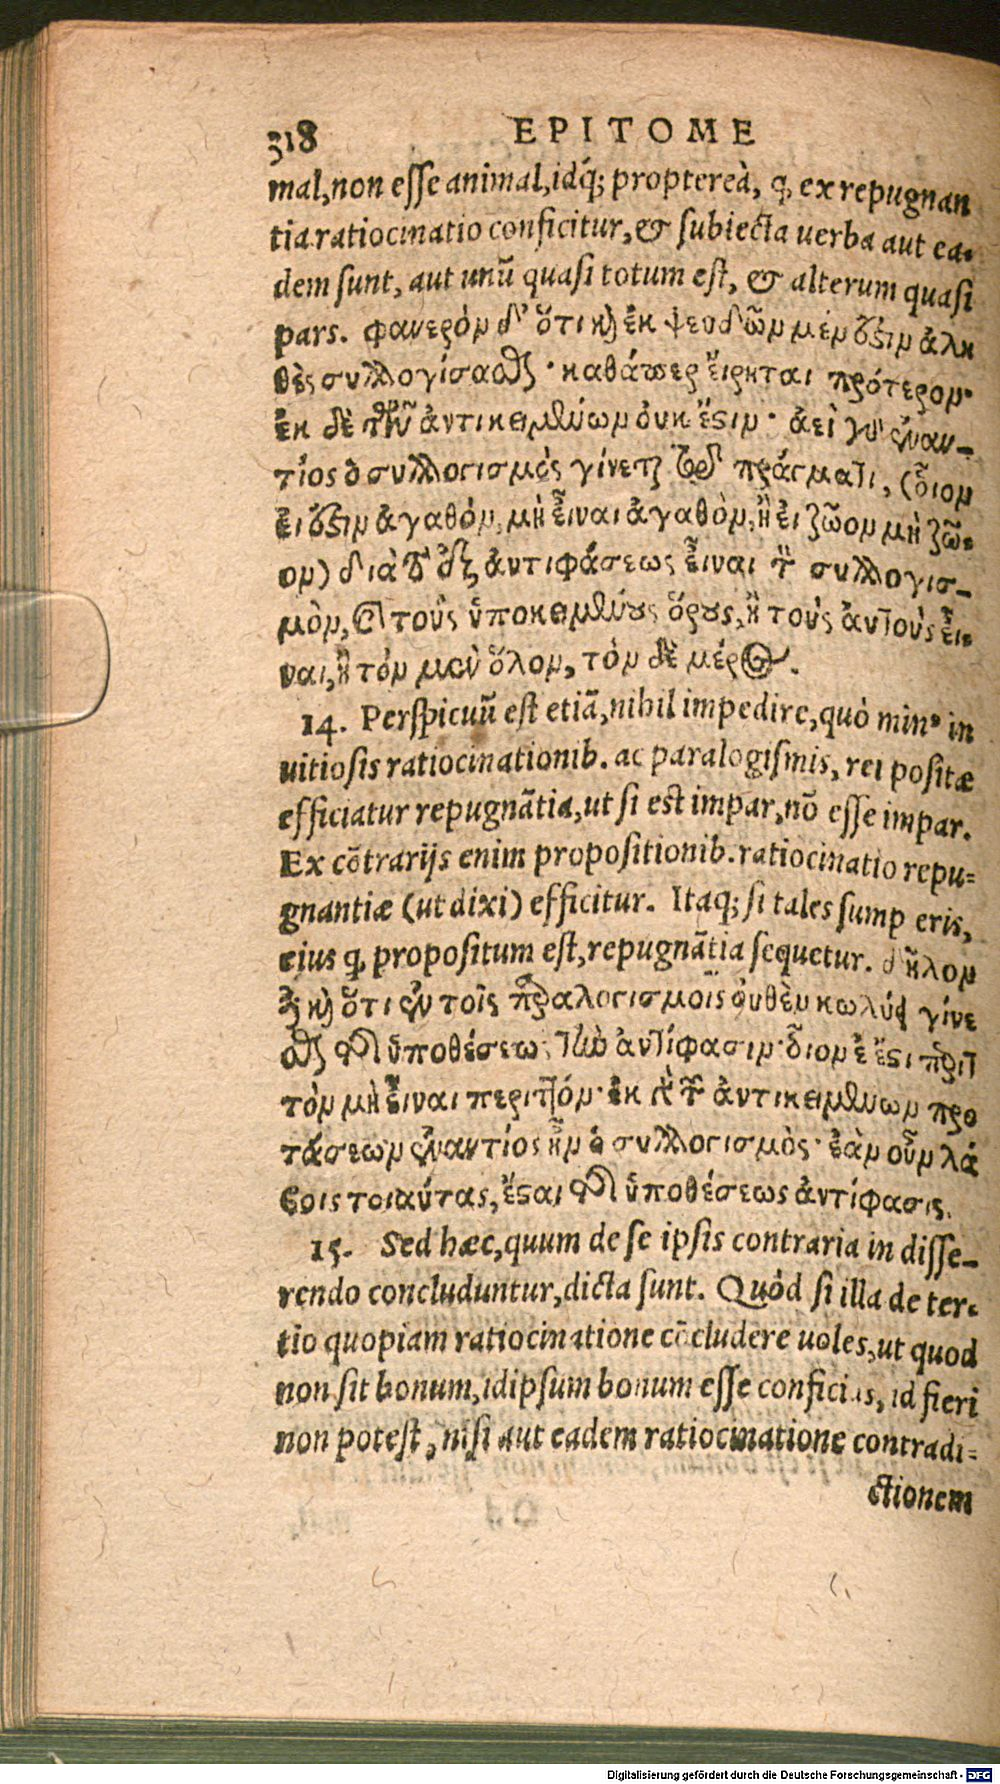 318 EPITOME
mal, non esse animal, idq́; propterea̍, q̨ ex repugnan
tia ratiocinatio conficitur, & subiecta uerba aut ea-
dem sunt, aut unũ quasi totum est, & alterum quasi
pars. φανερὸν δ' ὅτι κὶ ἐκ ψευδῶν μέν ἔστιν ἀλη
θὲς συλλογίσασθαι· καθάπερ ἔιρηται πρότερον·
ἐκ δὲ τῶν ἀντικειμένων ὀυκ ἔστιν· ἀεὶ γὰρ ἐναν-
τίος ὁ συλλογισμὸς γίνεται τοῦ πράγματι, (ὅιον
ἐι ἔστιν ἀγαθὸν, μὴ ἔιναι ἀγαθὸν, ἢ ἐι ζῶον μὴ ζῶ-
ον) διὰ τὸ ἐξ ἀντιφάσεως ἔιναι τὸν συλλογισ-
μὸν, καὶ τοὺς ὑποκειμένους ὅρους, ἢ τοὺς ἀυτοὺς ἔι-
ναι, ἢ τὸν μὲν ὅλον, τὸν δὲ μέρος.
14. Perspicuũ est etiã, nihil impedire, quò min⁹ in
uitiosis ratiocinationib. ac paralogismis, rei positæ
efficiatur repugnãtia, ut si est impar, nõ esse impar.
Ex cõtrarijs enim propositionib. ratiocinatio repu-
gnantiæ (ut dixi) efficitur. Itaq; si tales sumpseris,
eius q̨ propositum est, repugnãtia sequetur. δῆλον
δὲ κὶ ὅτι ἐν τοῖς παραλογισμοῖς ὀυθὲν κωλύει γίνε
σθαι τῆς ὑποθέσεως τὴν ἀντίφασιν· ὅιον ἐι ἔστι περιτ
τὸν μὴ ἔιναι περιττόν· ἐκ γὰρ τῶν ἀντικειμένων προ
τάσεων ἐναντίος ἦν ὁ συλλογισμὸς· ἐὰν οὖν λά
βοις τοιαύτας, ἔσται τῆς ὑποθέσεως ἀντίφασις.
15. Sed hæc, quum de se ipsis contraria in disse-
rendo concluduntur, dicta sunt. Quòd si illa de ter-
tio quopiam ratiocinatione cõcludere uoles, ut quod
non sit bonum, id ipsum bonum esse conficias, id fieri
non potest, nisi aut eadem ratiocinatione contradi-
ctionem
Digitalisierung gefördert durch die Deutsche Forschungsgemeinschaft - DFG